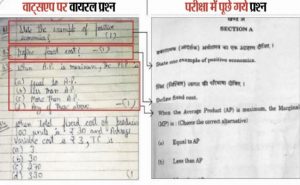 वाट्सएप पर वायरल प्रश्न
परीक्षा में पूछे गये प्रश्न
State one example of positive
economics? (1)
Define fixed cost? (1)
When A.P. is maximum, the M.P. is
(a) Equal to A.P.
(b) Less than A.P.
(c) More than A.P.
(d) Any of these above
When total fixed cost of producing
100 units is ₹ 30 and Average
Variable cost is ₹ 3, TC is
(a) ₹ 3
(b) ₹ 30
(c) ₹ 270
(d) ₹ 330
SECTION A
State one example of positive economics.
Define fixed cost.
When the Average Product (AP) is maximum, the Marginal
(MP) is : (Choose the correct alternative)
(a) Equal to AP
(b) Less than AP